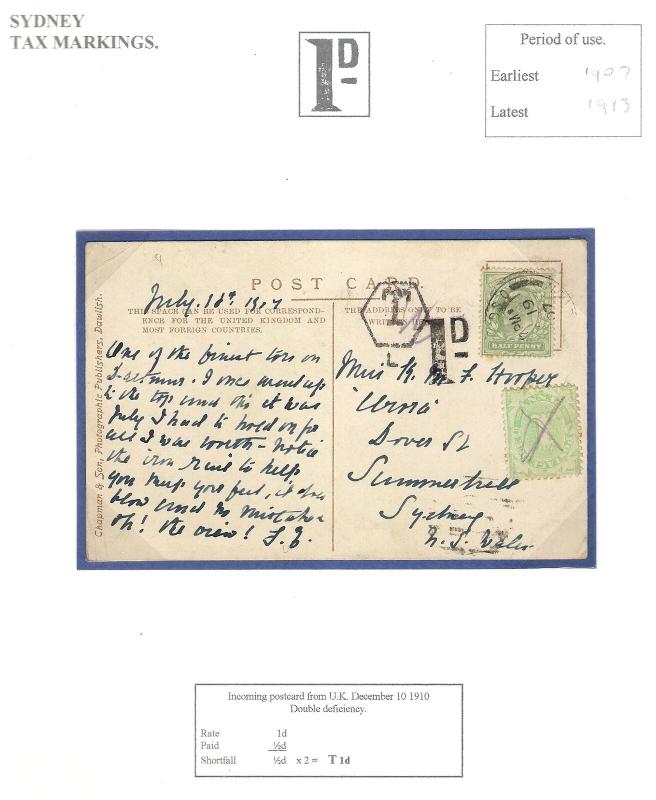 SYDNEY
TAX MARKINGS.
1D
Period of use.
Earliest 1907
Latest 1913
POST CARD.
July 18th 1907
THIS SPACE CAN BE USED FOR CORRESPOND-
ENCE FOR THE UNITED KINGDOM AND
MOST FOREIGN COUNTRIES.
THE ADDRESS ONLY TO BE
WRITTEN
T
L
1D
HALF PENNY
One of the finest tors on
Dartmoor. I once went up
to the top and tho it was
July I had to hold on for
all I was worth - notice
the iron rail to help
you keep your feet, it does
blow and no mistake
oh! the view!
Miss K. M. F. Hooper
Dover St
Summer
Sydney
N. S. Wales
Chapman & Son, Photographic Publishers, Dawlish.
Incoming postcard from U.K. December 10 1910
Double deficiency.
Rate 1d
Paid ½d
Shortfall ½d x 2 = T 1d